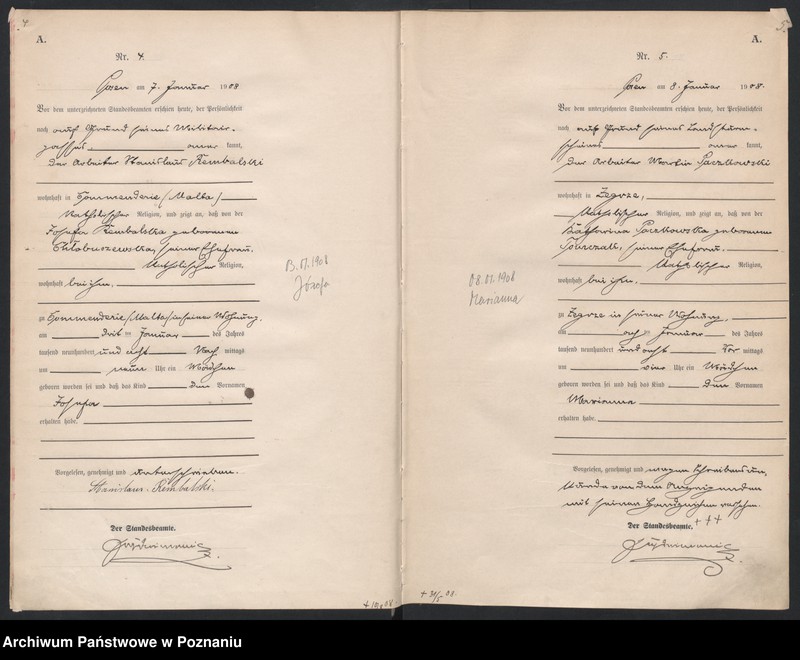 4
A.
Nr. 4.
Posen am 7. Januar 1908
Vor dem unterzeichneten Standesbeamten erschien heute, der Persönlichkeit
nach auf Grund seines Militär-
passes anerkannt,
der Arbeiter Stanislaus Rembalski
wohnhaft in Kommenderie (Malta)
katholischer Religion, und zeigt an, daß von der
Josefa Rembalska geborenen
Chlobuszewska, seiner Ehefrau,
katholischer Religion,
wohnhaft bei ihm,
zu Kommenderie (Malta) in seiner Wohnung,
am drit ten Januar des Jahres
tausend neunhundert und acht Nach mittags
um neun Uhr ein Mädchen
geboren worden sei und daß das Kind den Vornamen
Josefa
erhalten habe.
Vorgelesen, genehmigt und unterschrieben.
Stanislaus Rembalski.
Der Standesbeamte.
Józefa
5.
A.
Nr. 5.
Posen am 8. Januar 1908.
Vor dem unterzeichneten Standesbeamten erschien heute, der Persönlichkeit
nach auf Grund seines Landsturm-
scheines anerkannt,
der Arbeiter Martin Paczkowski
wohnhaft in Zegrze,
katholischer Religion, und zeigt an, daß von der
Katharina Paczkowska geborenen
seiner Ehefrau,
katholischer Religion,
wohnhaft bei ihm,
zu Zegrze in seiner Wohnung,
am ach ten Januar des Jahres
tausend neunhundert und acht Vor mittags
um vier Uhr ein Mädchen
geboren worden sei und daß das Kind den Vornamen
Marianna
erhalten habe.
Vorgelesen, genehmigt und wegen Schreibensun.
wurde von dem Anzeigenden
mit seinen Handzeichen versehen.
+++
Der Standesbeamte.
08.01.1908
Marianna
+ 31/5 08.
Archiwum Państwowe w Poznaniu